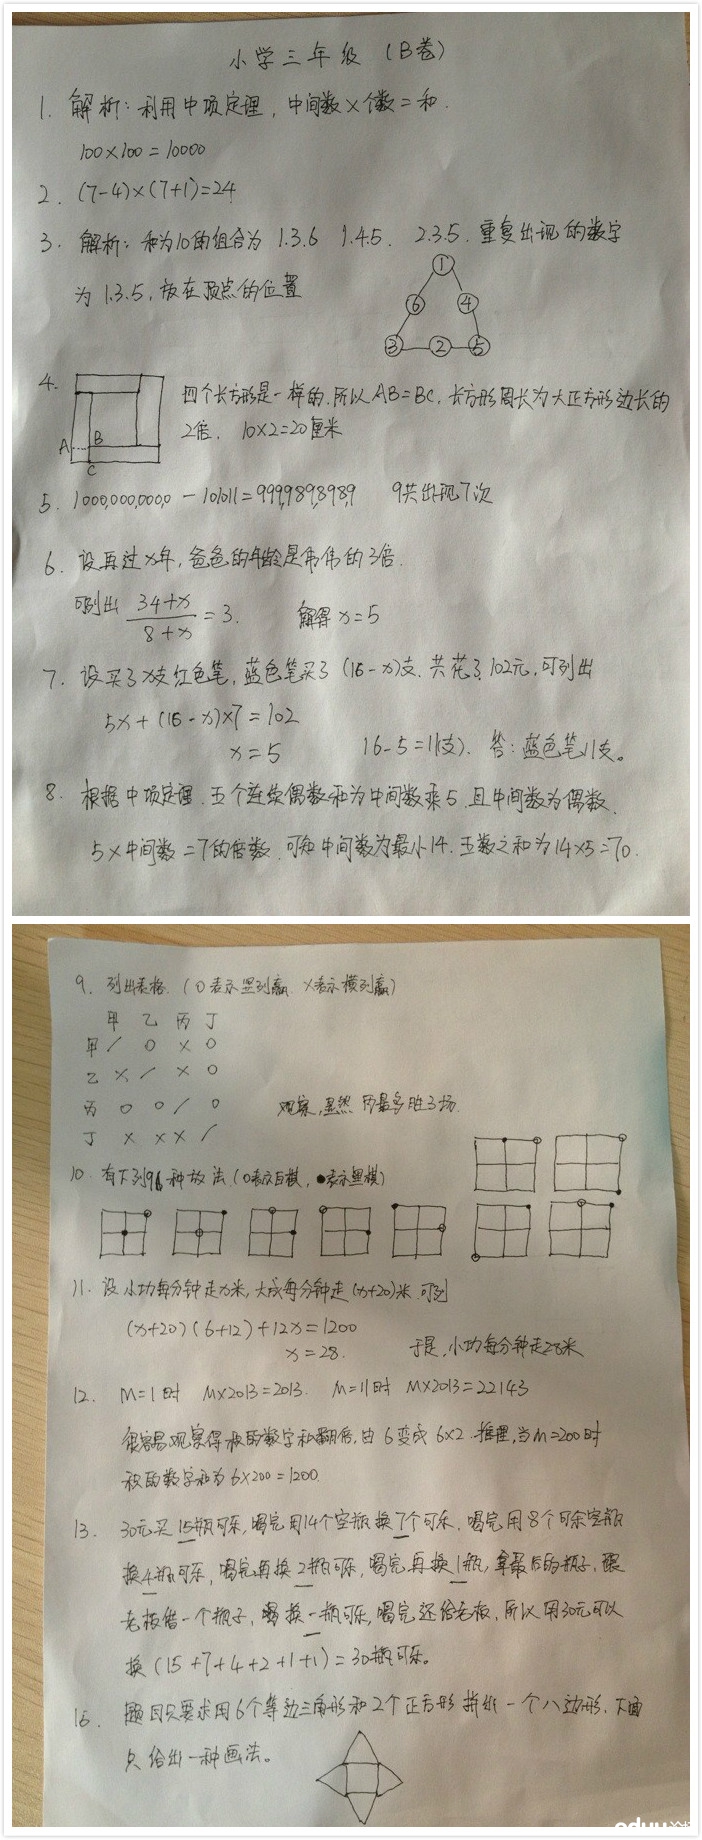 小学三年级（B卷）
1. 解析：利用中项定理，中间数×个数＝和.
100×100＝10000
2. (7-4)×(7+1)=24
3. 解析：和为10的组合为 1.3.6 1.4.5. 2.3.5. 重复出现的数字
为 1.3.5，放在顶点的位置
1
6 4
3 2 5
4. 四个长方形是一样的.所以AB=BC，长方形周长为大正方形边长的
2倍. 10×2=20厘米
A B
C
5. 1000,000,000,0 - 101011 = 999,989,898,9 9共出现7次
6. 设再过x年，爸爸的年龄是伟伟的3倍.
可列出 34+x / 8+x = 3. 解得 x=5
7. 设买了x支红色笔，蓝色笔买了 (16-x)支. 共花了102元，可列出
5x+(16-x)×7=102
x=5 16-5=11(支). 答：蓝色笔11支。
8. 根据中项定理. 五个连续偶数和为中间数乘5. 且中间数为偶数.
5×中间数=7的倍数. 可知中间数为最小14. 五数之和为14×5=70.
9. 列出表格.（O表示竖列赢. X表示横列赢）
甲 乙 丙 丁
甲 / O X O
乙 X / X O
丙 O O / O 观察，显然 丙最多胜3场.
丁 X X X /
10. 有下列 种放法.（O表示白棋，●表示黑棋）
11. 设小功每分钟走x米，大成每分钟走(x+20)米.可列
(x+20)(6+12)+12x=1200
x=28. 于是，小功每分钟走28米
12. M=1时 M×2013=2013. M=11时 M×2013=22143
很容易观察得积的数字和翻倍，由 6 变成 6×2. 推理，当m=200时
积的数字和为6×200=1200.
13. 30元买15瓶可乐，喝完用14个空瓶换7个可乐，喝完用8个可乐空瓶
换4瓶可乐，喝完再换2瓶可乐，喝完再换1瓶，拿最后的瓶子，跟
老板借一个瓶子，喝换一瓶可乐，喝完还给老板，所以用30元可以
换(15+7+4+2+1+1)=30瓶可乐。
15. 题目只要求用6个等边三角形和2个正方形拼出一个八边形，下面
只给出一种画法。